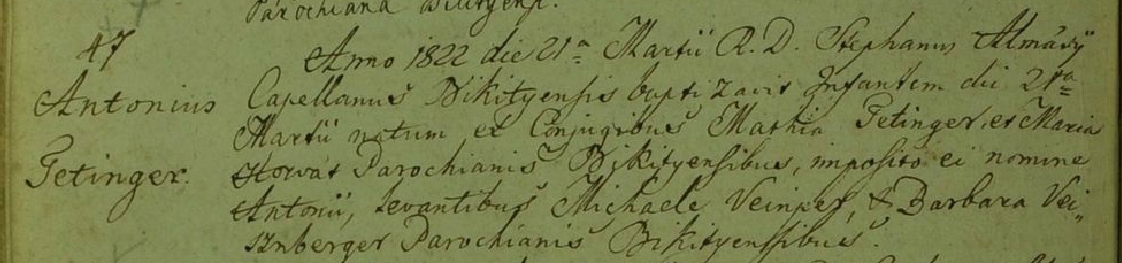 Parochiana Bikityensi.
47
Antonius
Petinger.
Anno 1822 die 21ª Martii R. D. Stephanus Almásÿ
Capellanus Bikityensis baptizavit Infantem die 21ª
Martii natum, ex Conjugibus Mathia Petinger, et Maria
Horvát Parochianis Bikityensibus, imposito ei nomine
Antonii, Levantibus Michaele Veinper, & Barbara Vei„
sznberger Parochianis Bikityensibus.